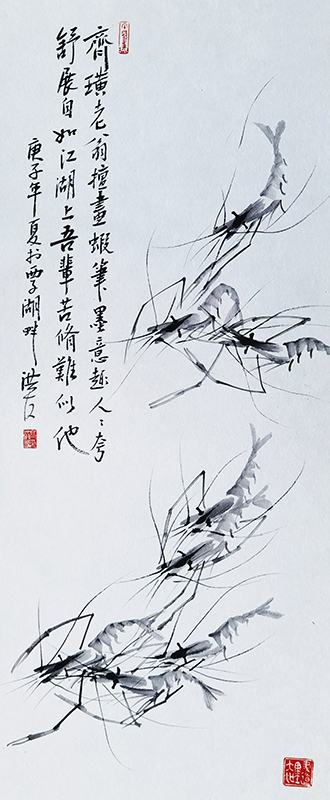 齊璜老翁擅畫蝦筆墨意趣人々夸
舒展自如江湖上吾輩苦脩難似他
庚子年夏於墨湖畔洪石